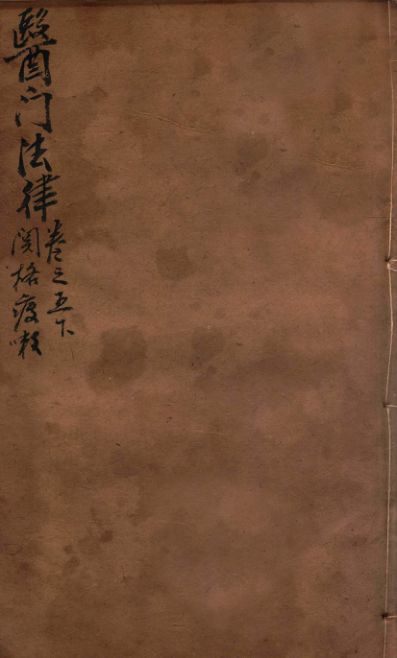 醫门法律
卷之五下
関格痰嗽